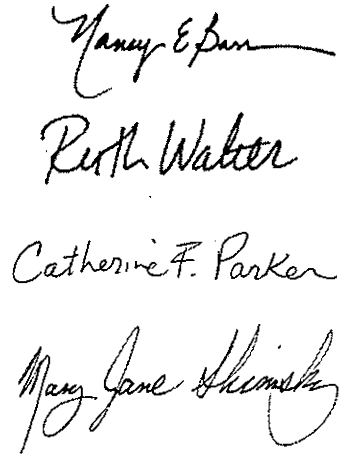 Nancy E Barr
Ruth Walter
Catherine F. Parker
Mary Jane Shimsky